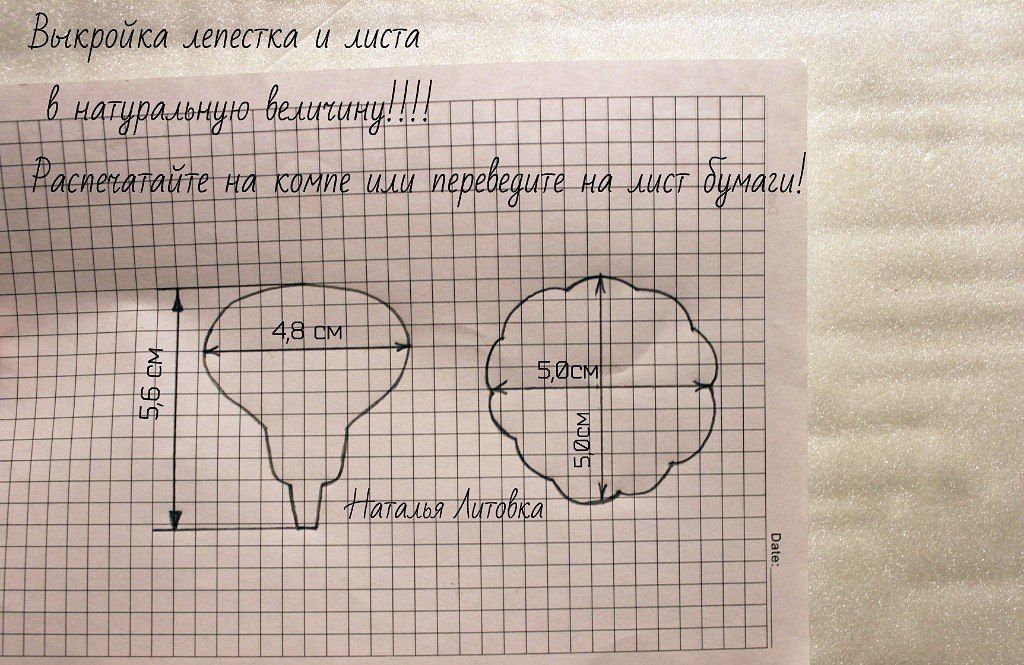 Выкройка лепестка и листа
в натуральную величину!!!!
Распечатайте на компе или переведите на лист бумаги!
4,8 см
5,6 см
5,0см
5,0см
Наталья Литовка
Date: